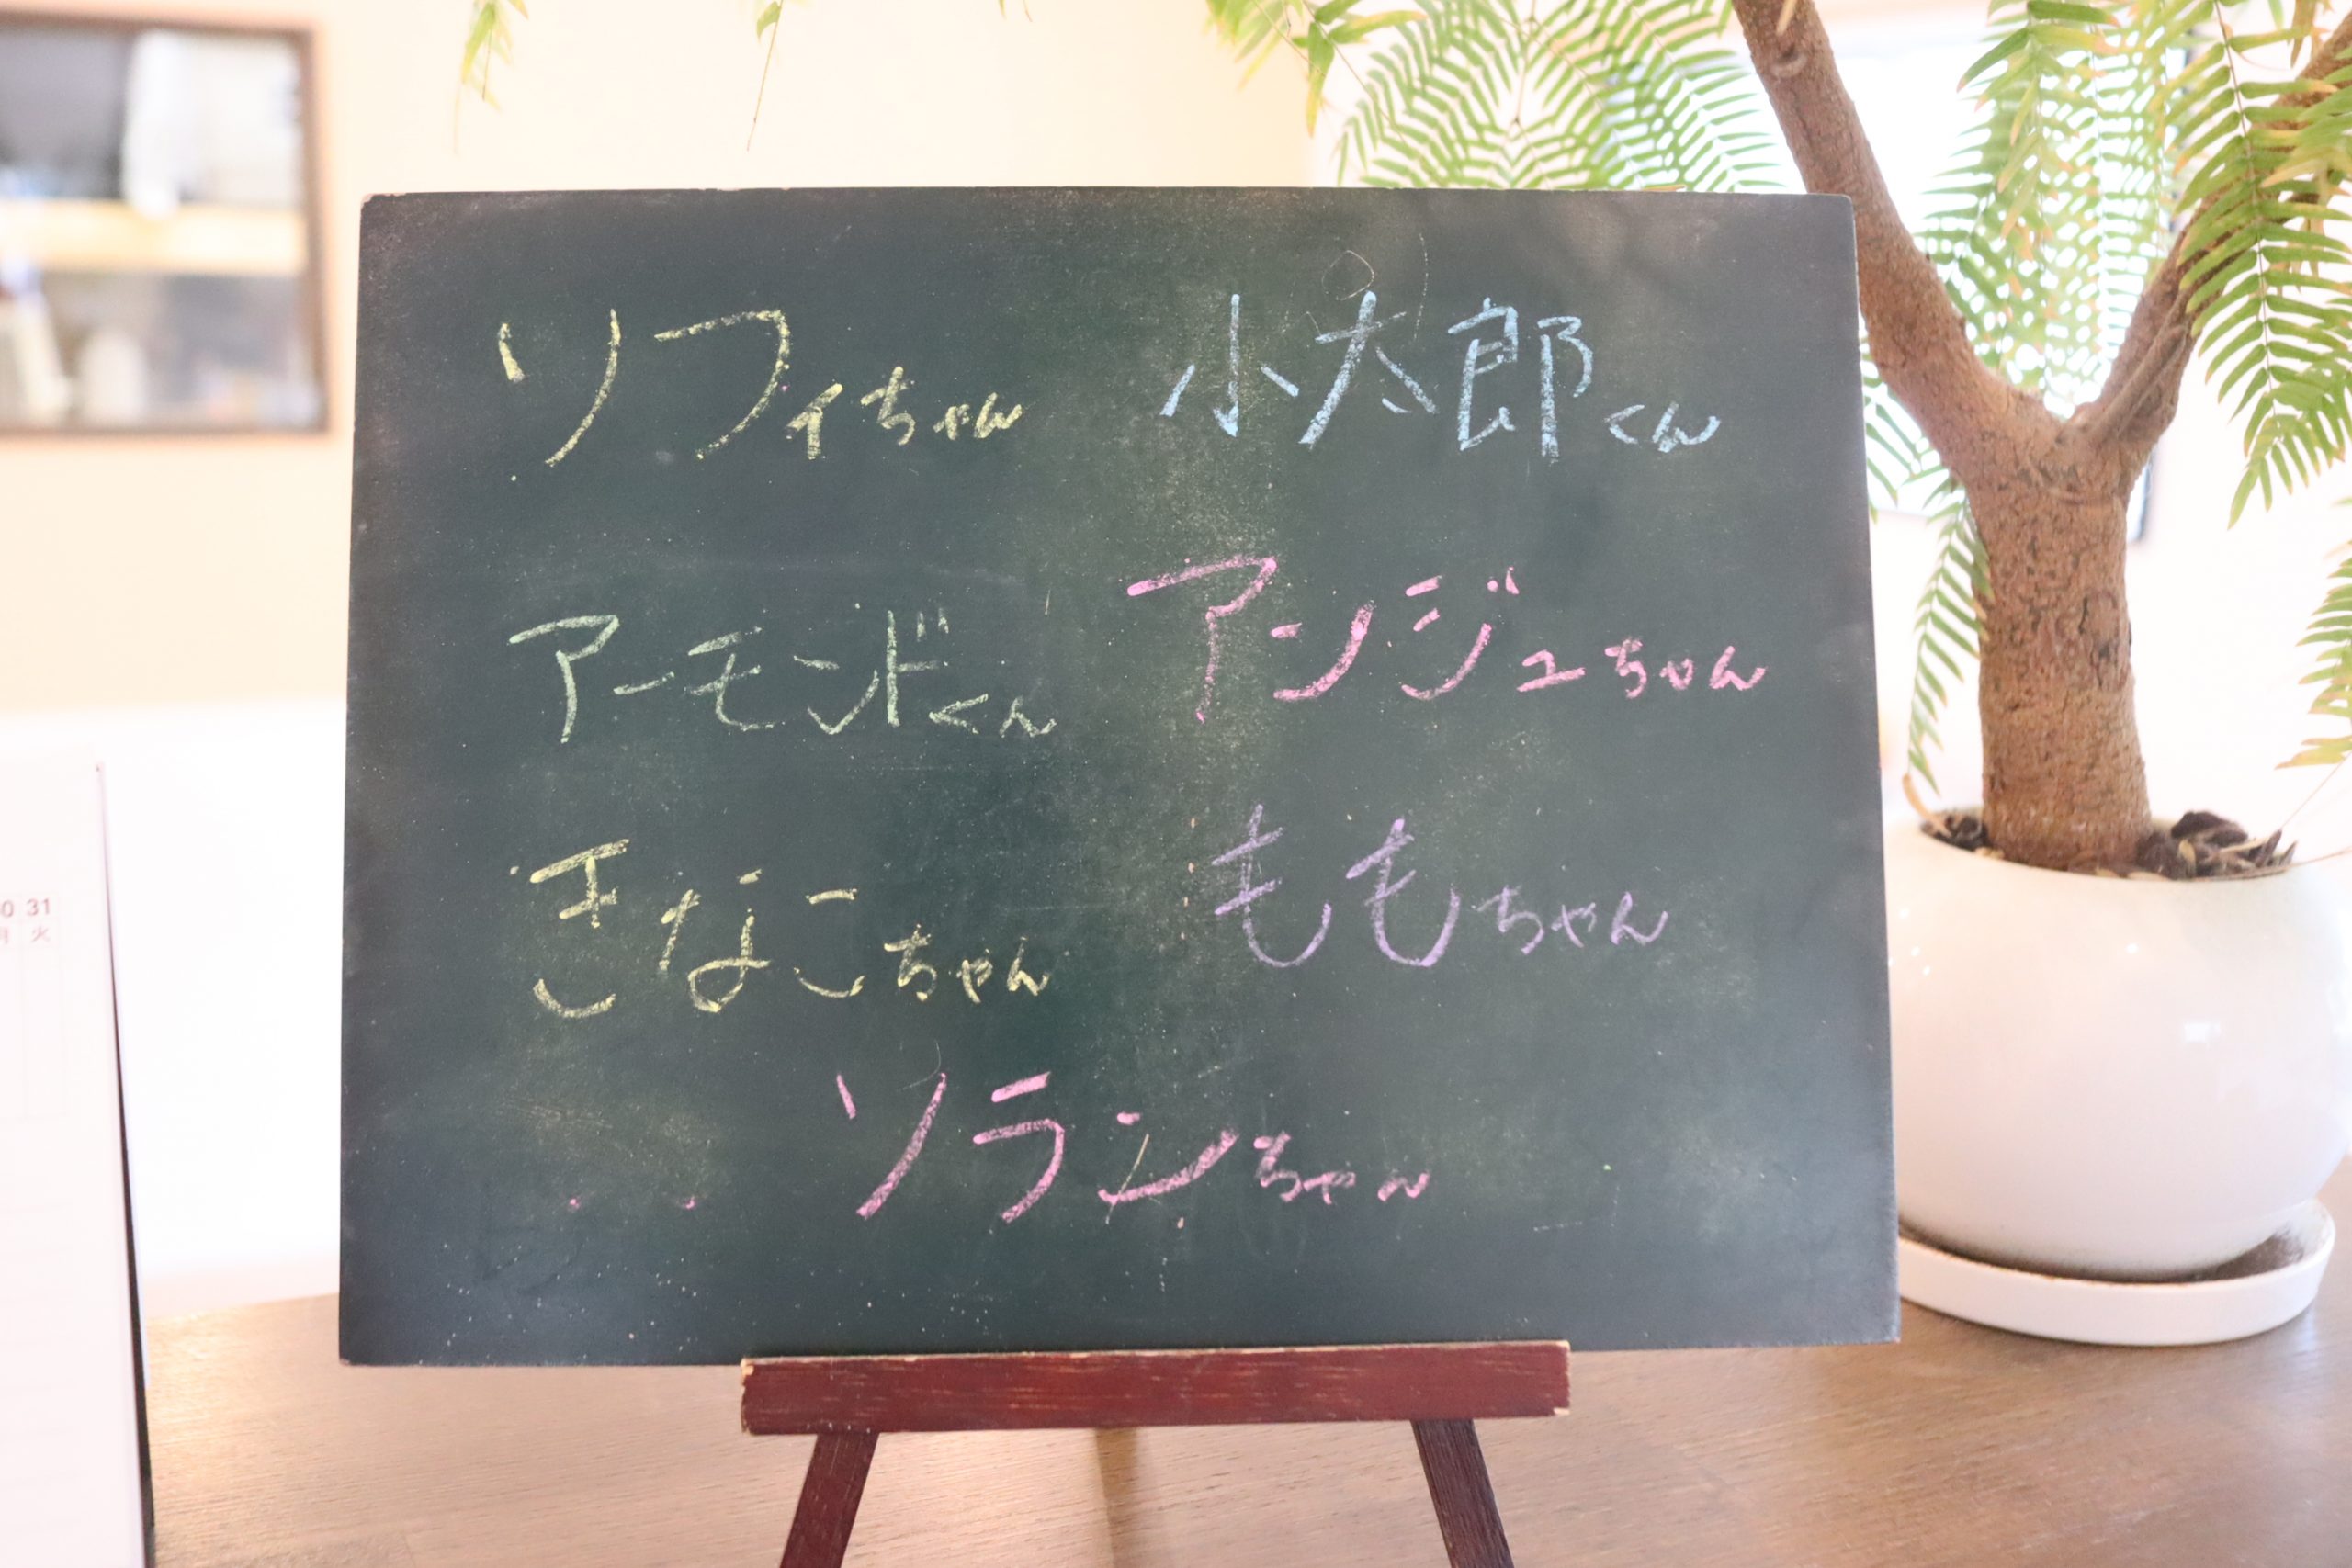 ソフィちゃん 小太郎くん
アーモンドくん アンジュちゃん
きなこちゃん ももちゃん
ソランちゃん
31
火